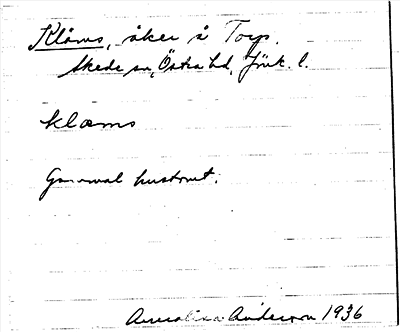 Klåms, åker å Torp.
Skede sn, Östra hd, Jönk. l.
klæms
Gammal hustomt.
Anderson 1936